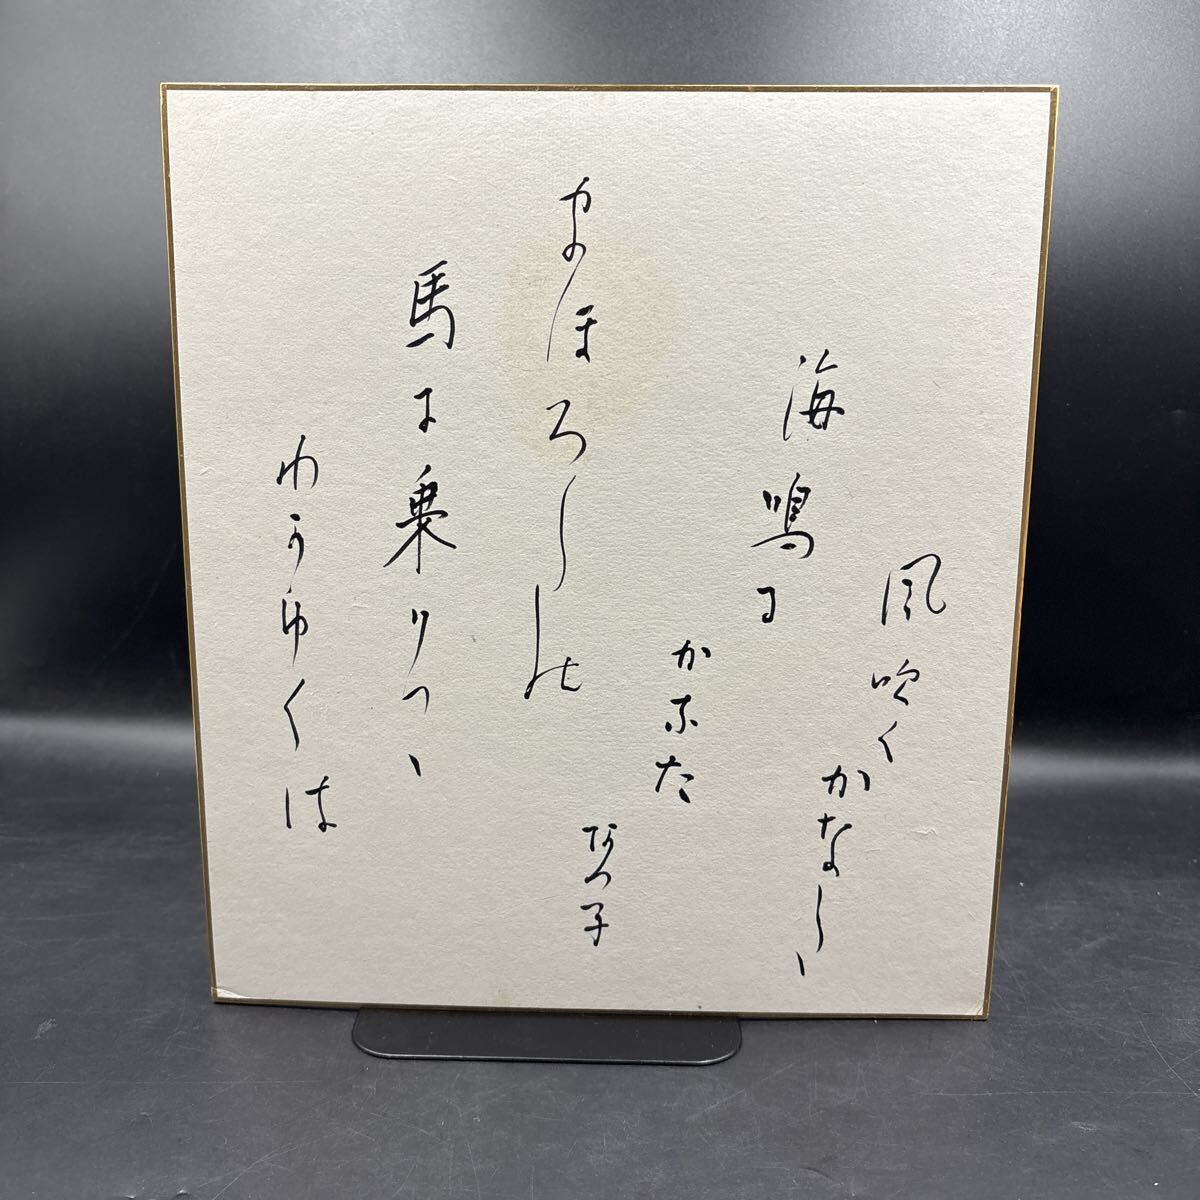 まほろしの
馬に乗りつゝ
わかゆくは
海鳴る
かなた
風吹く
かなし
なつ子